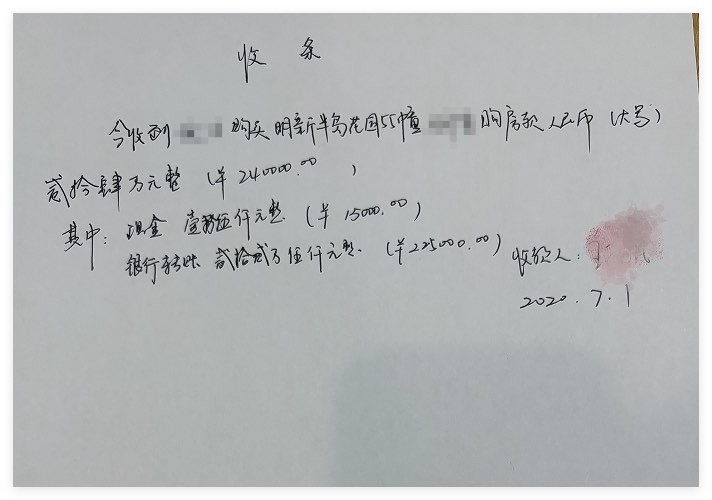 收 条
今收到 购买明新半岛花园55幢 购房款人民币(大写)
贰拾肆万元整 (¥240000.00 )
其中: 现金 壹万伍仟元整. (¥15000.00)
银行转账 贰拾贰万伍仟元整. (¥225000.00)
收款人:
2020.7.1